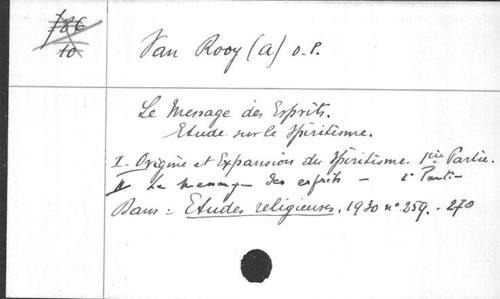 786
10
Van Rooy (A) O.P.
Le Message des Esprits.
Etude sur le Spiritisme.
I - Origine et Expansion du Spiritisme. 1ère Partie.
II Le message des esprits - 2e Partie
Dans : Etudes religieuses, 1930 n° 259. - 270